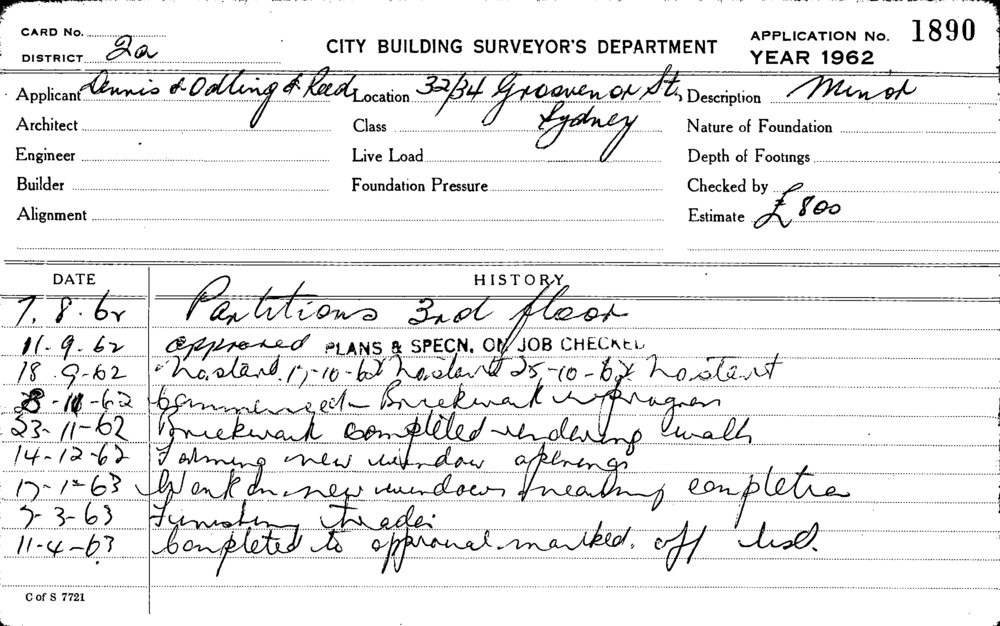 CARD No.
DISTRICT 2a
CITY BUILDING SURVEYOR'S DEPARTMENT
APPLICATION No. 1890
YEAR 1962
Applicant Dennis & Odling & Reed Location 32/34 Grosvenor St, Description Minor
Architect Class Sydney Nature of Foundation
Engineer Live Load Depth of Footings
Builder Foundation Pressure Checked by
Alignment Estimate £800
DATE HISTORY
7. 8. 62 Partitions 3rd floor
11-9-62 approved PLANS & SPECN. ON JOB CHECKED
18-9-62 No start. 17-10-62 No start 25-10-62 No start
-11-62 Commenced - Brickwork in progress
23-11-62 Brickwork completed rendering walls
14-12-62 Forming new window openings
17-1-63 Work on new windows nearing completion
7-3-63 Finishing trades
11-4-63 Completed to approval. marked. off list.
C of S 7721